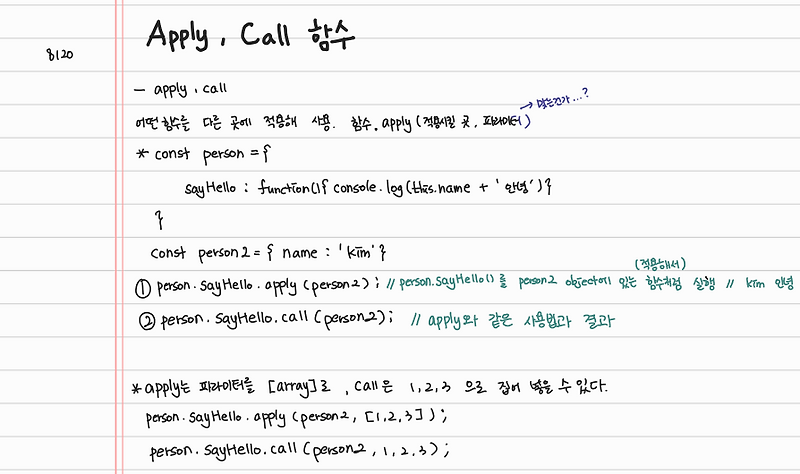 Apply, Call 함수
8/20
- apply, call
→ 맞는건가...?
어떤 함수를 다른 곳에 적용해 사용. 함수.apply(적용시킬 곳, 파라미터)
* const person = {
sayHello : function(){ console.log(this.name + '안녕')}
}
const person2 = { name : 'kim'}
(적용해서)
① person.sayHello.apply(person2); // person.sayHello()를 person2 object에 있는 함수처럼 실행 // kim 안녕
② person.sayHello.call(person2); // apply와 같은 사용법과 결과
* apply는 파라미터를 [array]로, call은 1,2,3 으로 집어 넣을 수 있다.
person.sayHello.apply(person2, [1,2,3]);
person.sayHello.call(person2, 1,2,3);